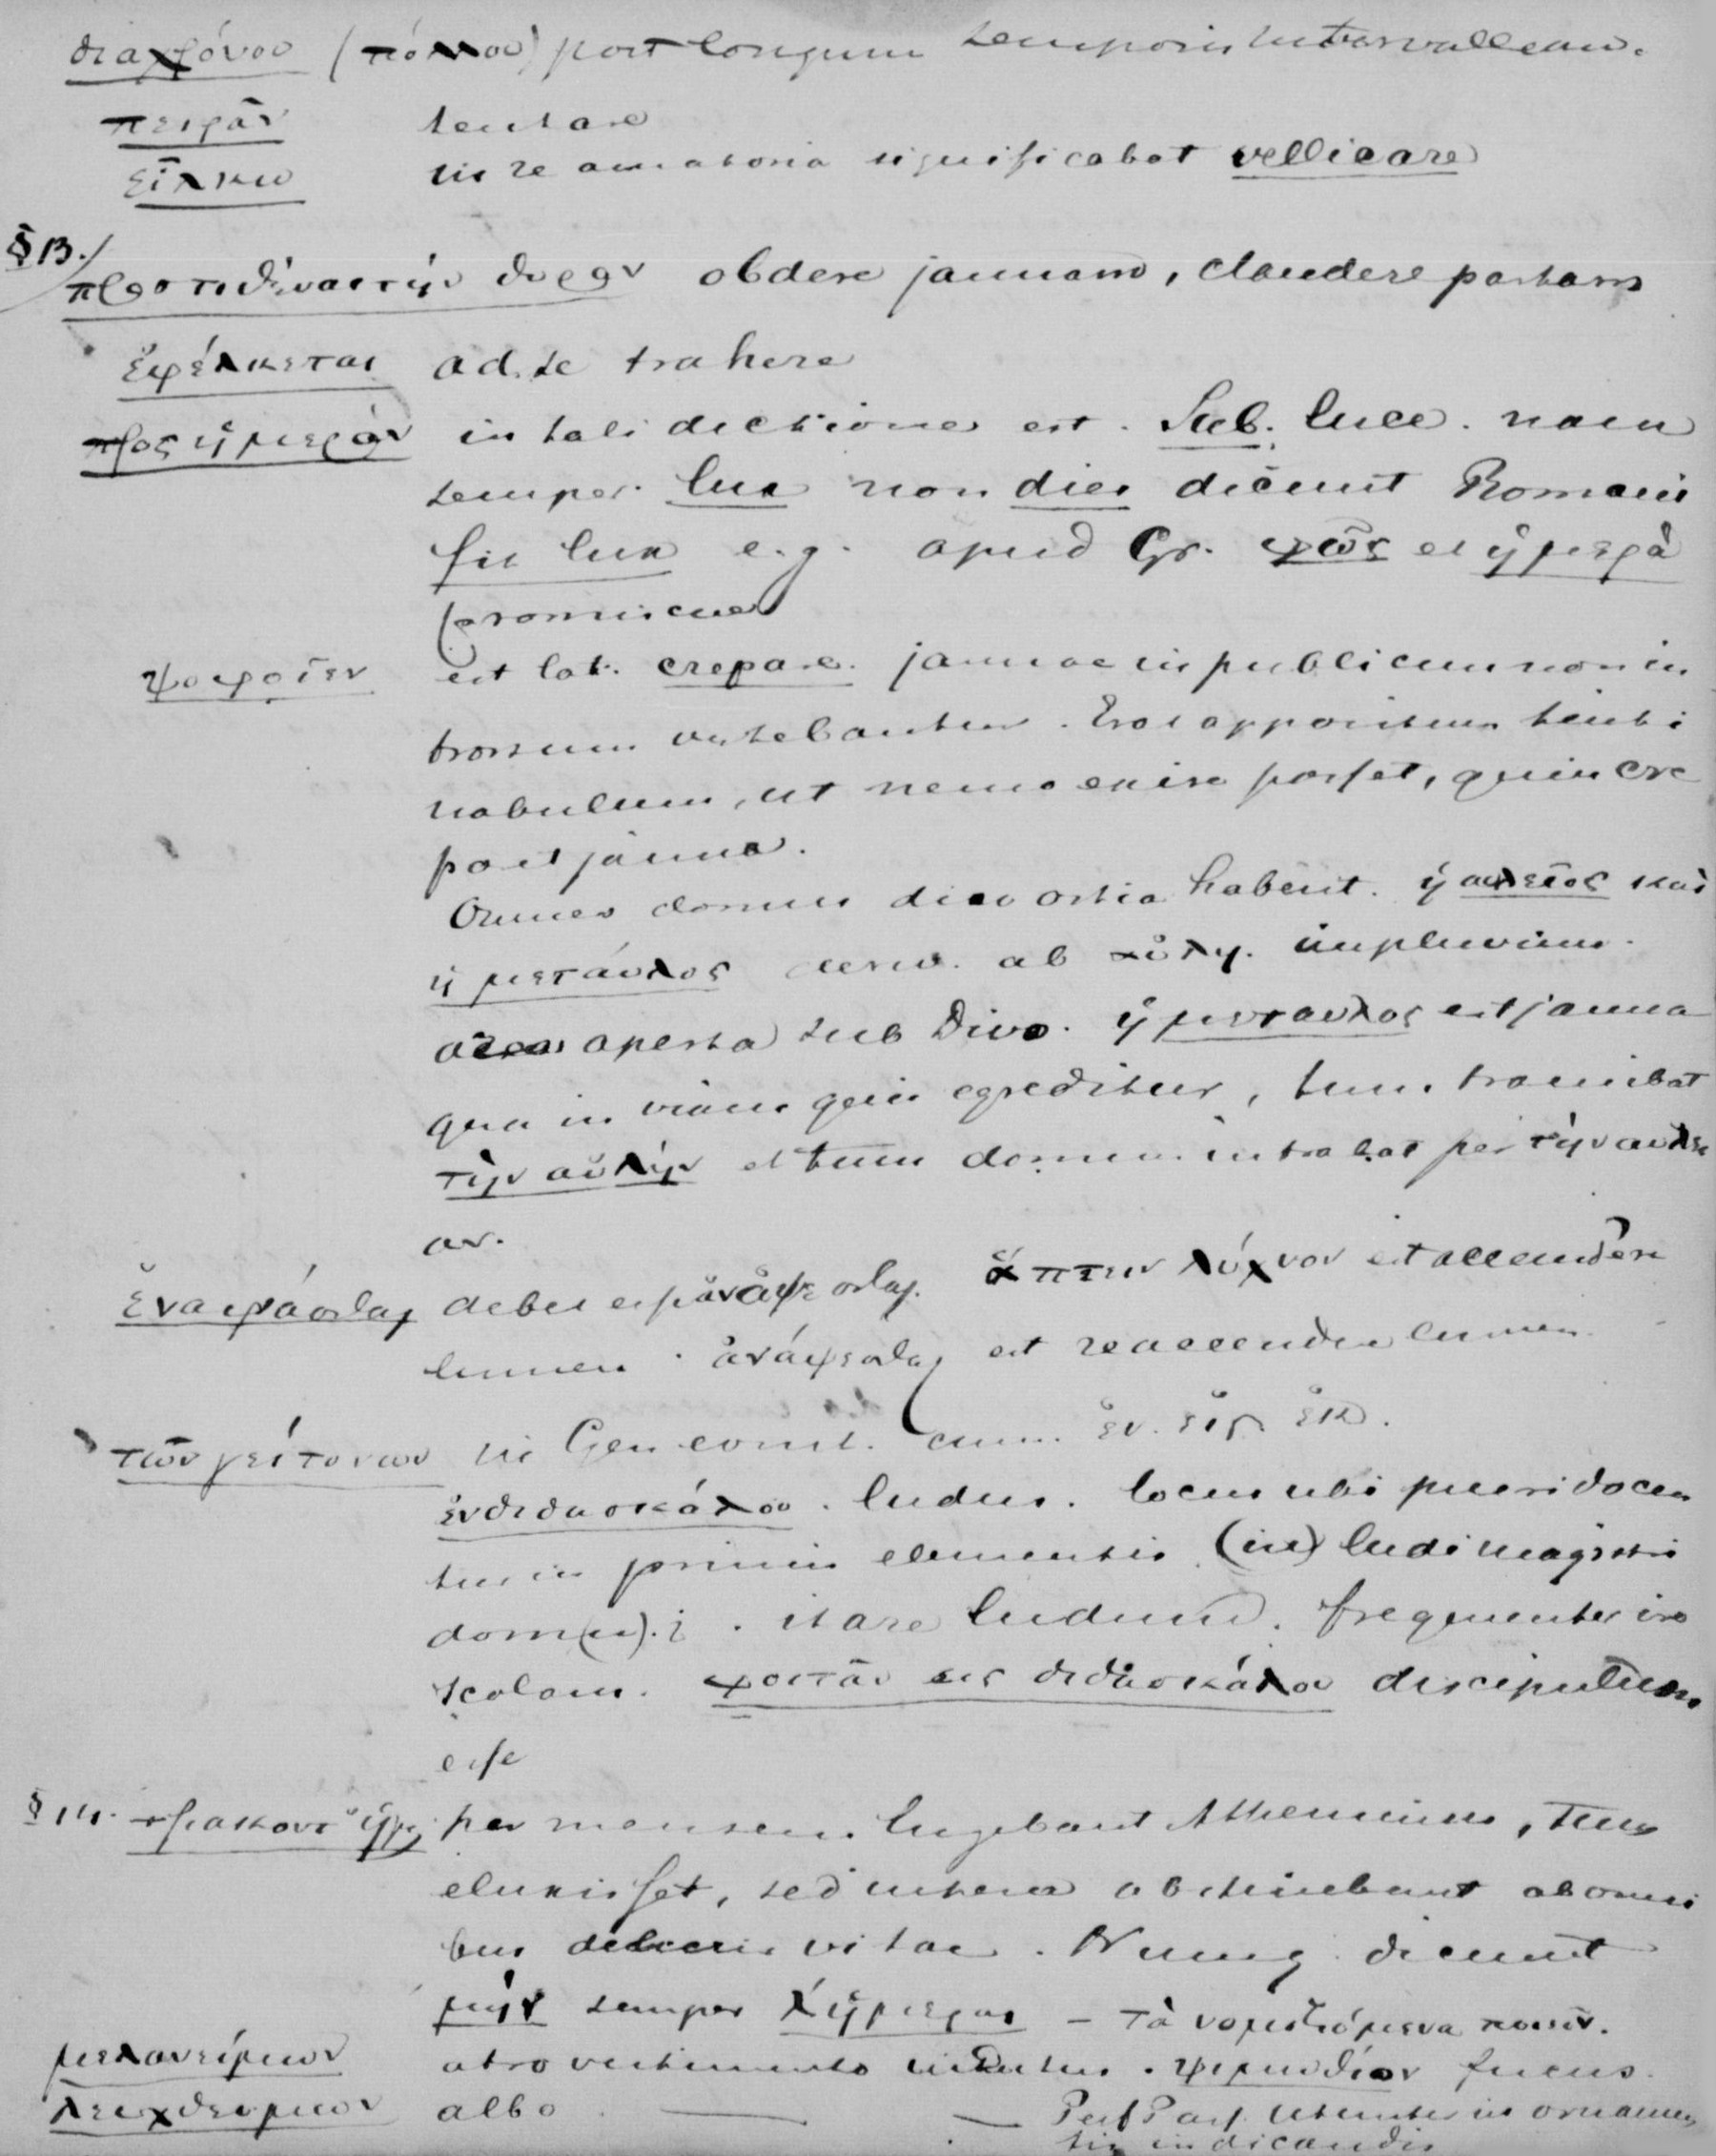 διαχρόνου (πόλλου) post longum temporis intervallum.
πειρᾶν tentare
εἷλκω in re amatoria significabat vellicare
§ 13. προστιθέναι τὴν θυραν obdere januam, claudere portam
ἐφέλκεται ad se trahere
προς ἡμεραν in tali dictione est. Sub. luce. nam
semper lux non dies dicunt Romani
fit lux e.g. apud Gr. φῶς et ἡμερὰ
promiscue
ψοφοῖεν est lat. crepare. januae in publicum non in
trorsum vertebantur. Erat appositum tinti
nabulum, ut nemo exire posset, quin cre
paet janua.
Omnes domus duo ostia habent. ἡ αυλεῖος καὶ
ἡ μεταύλος deriv. ab αὐλη. impluvium.
area aperta sub Divo. ἡ μεταυλος est janua
qua in viam quis egreditur, tum transibat
τὴν αὐλὴν et tum domum intrabat per τὴν αυλει
αν.
ἐναψάσθαι debet esse ἀνάψεσθαι. ἅπτειν λύχνον est accendere
lumen. ἀνάψεσθαι est reaccendere lumen.
τῶν γείτονων in Gen const. cum. ἐν. εἰς. ἐκ.
ἐνδιδασκάλου. ludus. locus ubi pueri docen
tur in primis elementis (in) ludi magistri
dom(u). j. itare ludum. frequenter ire
scolam. φοιτᾶν εις διδασκάλου discipulum
esse
§ 14. τριακονθ' ἡμ per mensem. lugebant Athenienses, tum
eluxisset, sed interea abstinebant ab omni
bus deliciis vitae. Nunq. dicunt
μὴν semper λ' ἡμερας – τὰ νομιζόμενα ποιεῖν.
μελανείμων atro vestimento indutus. ψιμυθίον fucus.
λευχθειμων albo —— — Perf Pass. utuntur in ornamen
tis indicandis